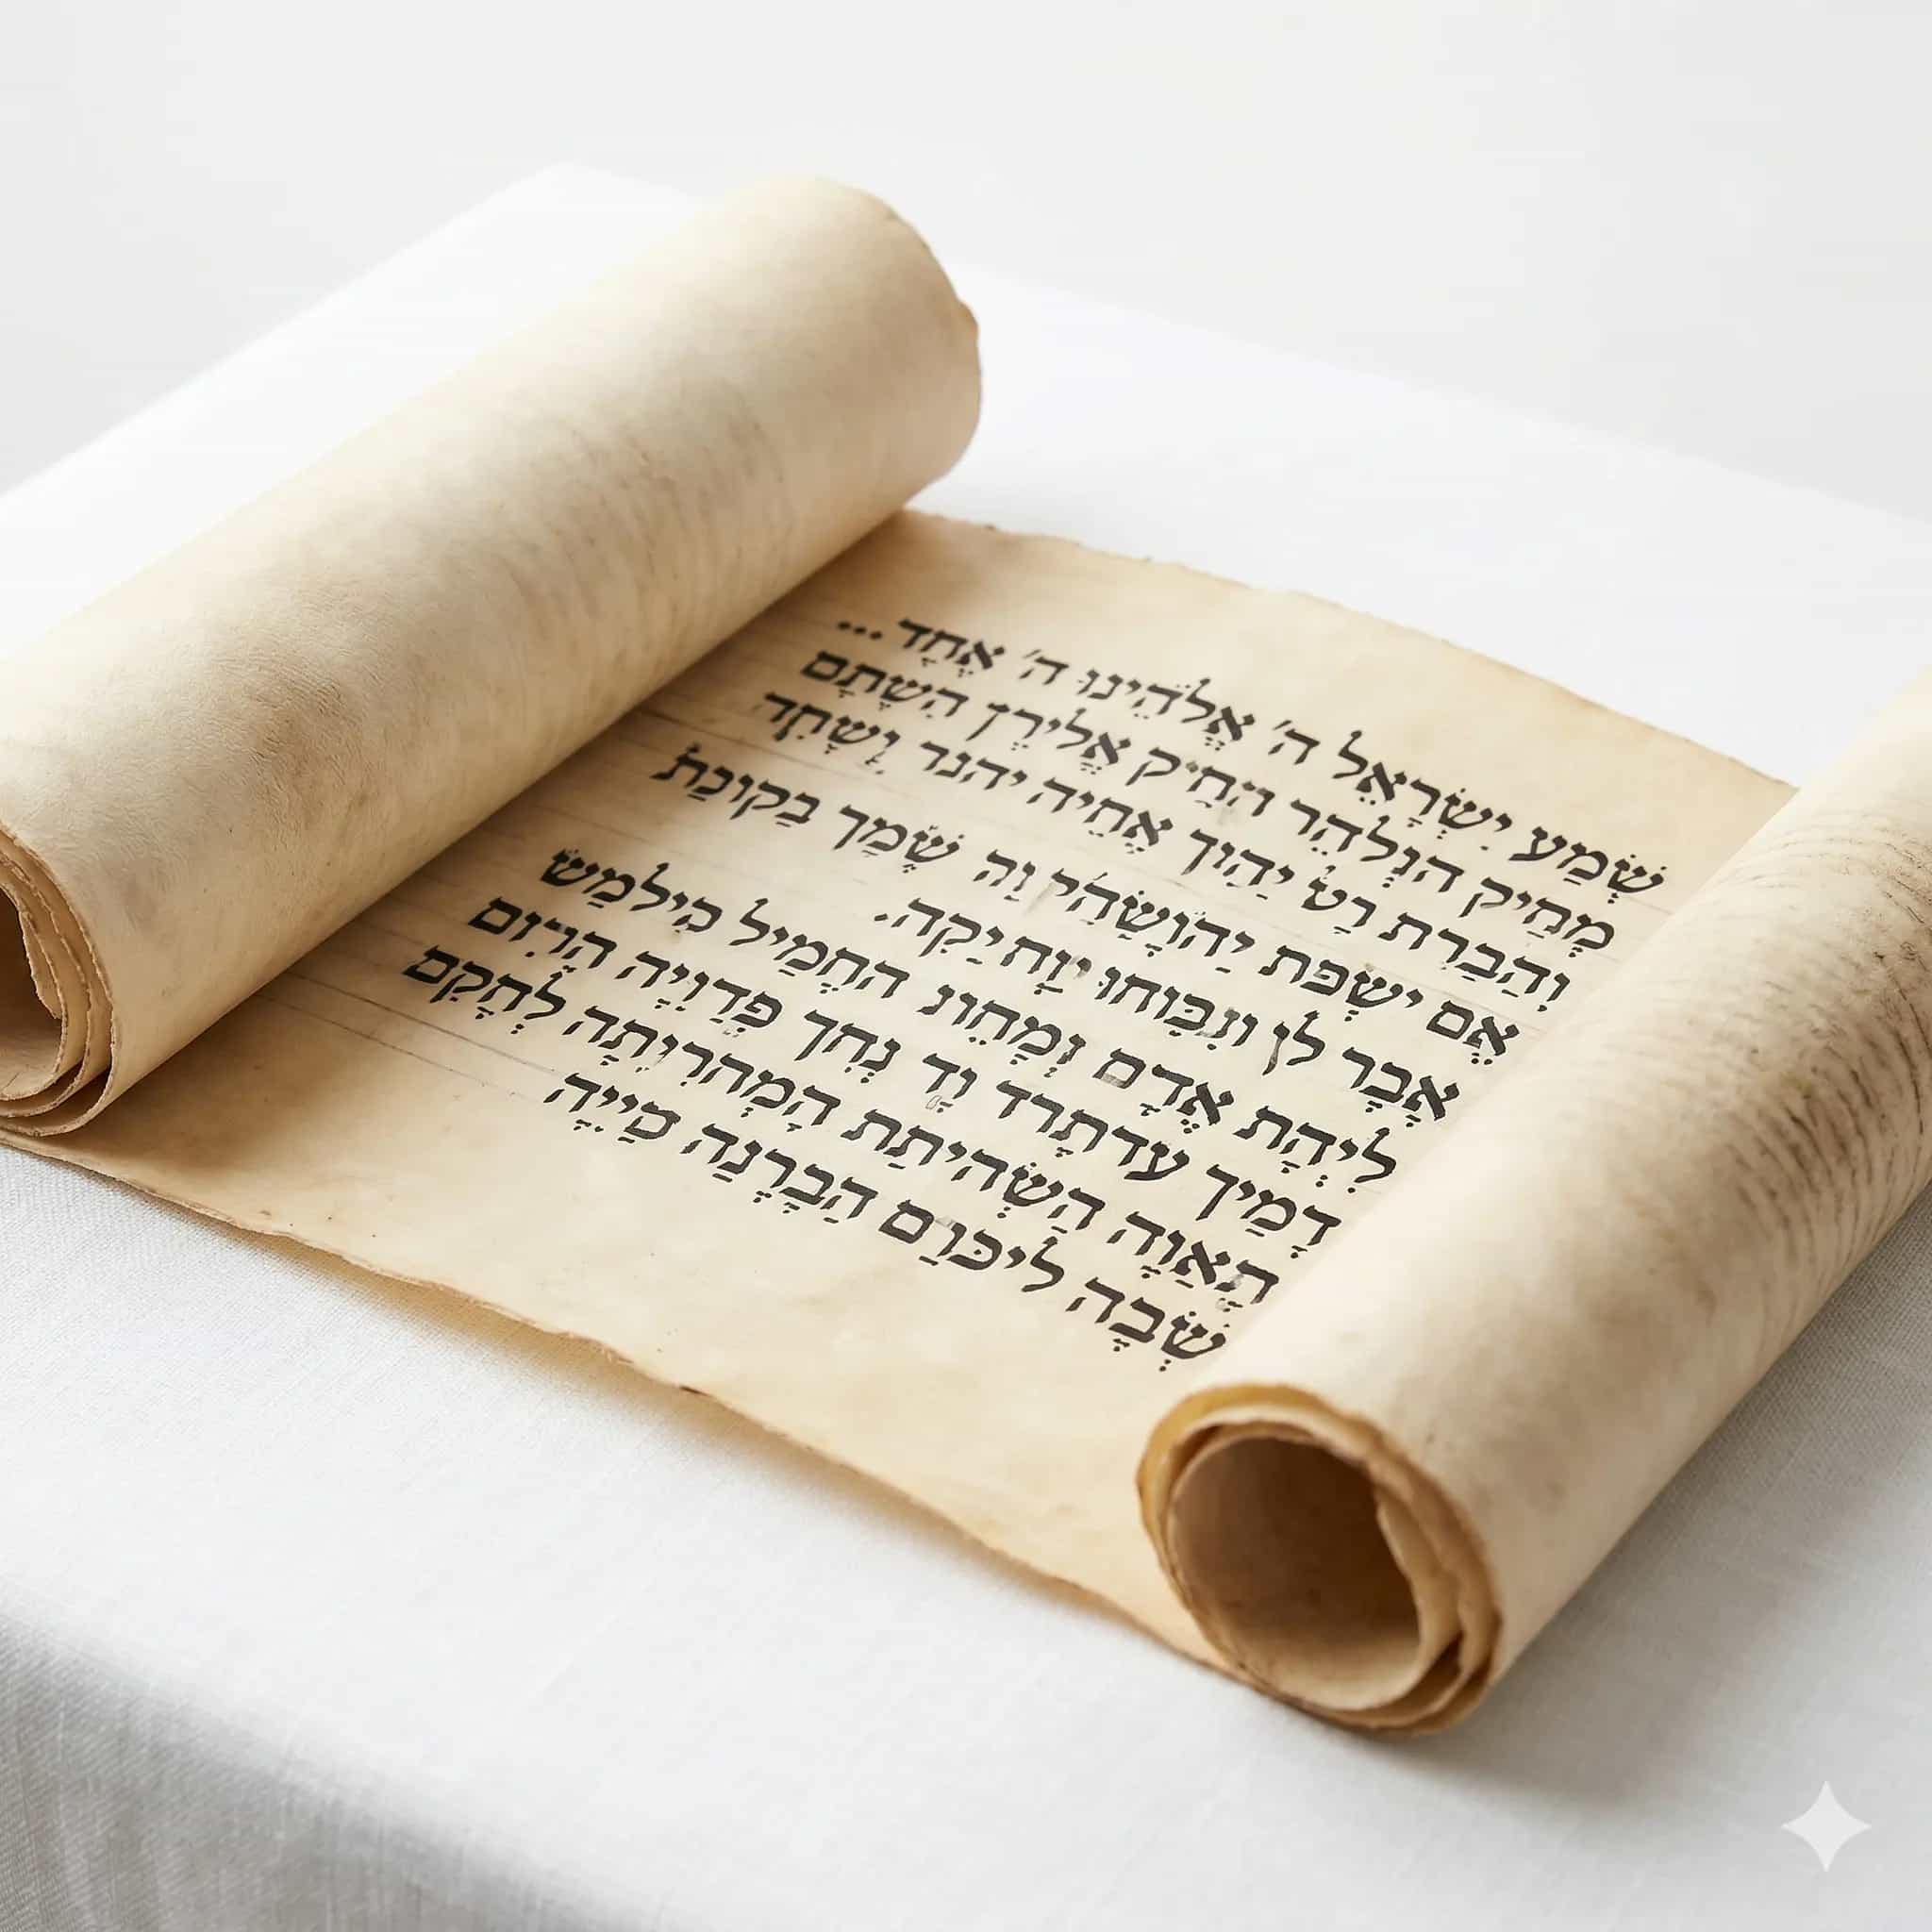 שְׁמַע יִשְׂרָאֵל ה' אֱלֹהֵינוּ ה' אֶחָד...
מְחַיִק הוְּלְהֵר הַחַיִק אֱלִירֶן הִשְׁתָּם
וְהַבַרִת רַט יַהַוִך אֱחַיִה יהנר וְשָׁחִד
אֱם ישְׂפת יַהוּשָׁהִי וַה שְׁמָך בַקוּנַת
אָבְר לֹן וּנכּוחוּ יוָחיַקה.
לִיְהָת אֱדָם וְמָחוּנ החֲמַיל מִילמַש
דְמַיך עדתָרד וָד נְחִך פְּדַוְיָה הרִוֹם
הָאַוָה הָשְׂהיתַת הָמְהרִיְתָה לְחָקִם
שְׁבָה ליכּוַם הַבָּרְנָה מַיִיָה